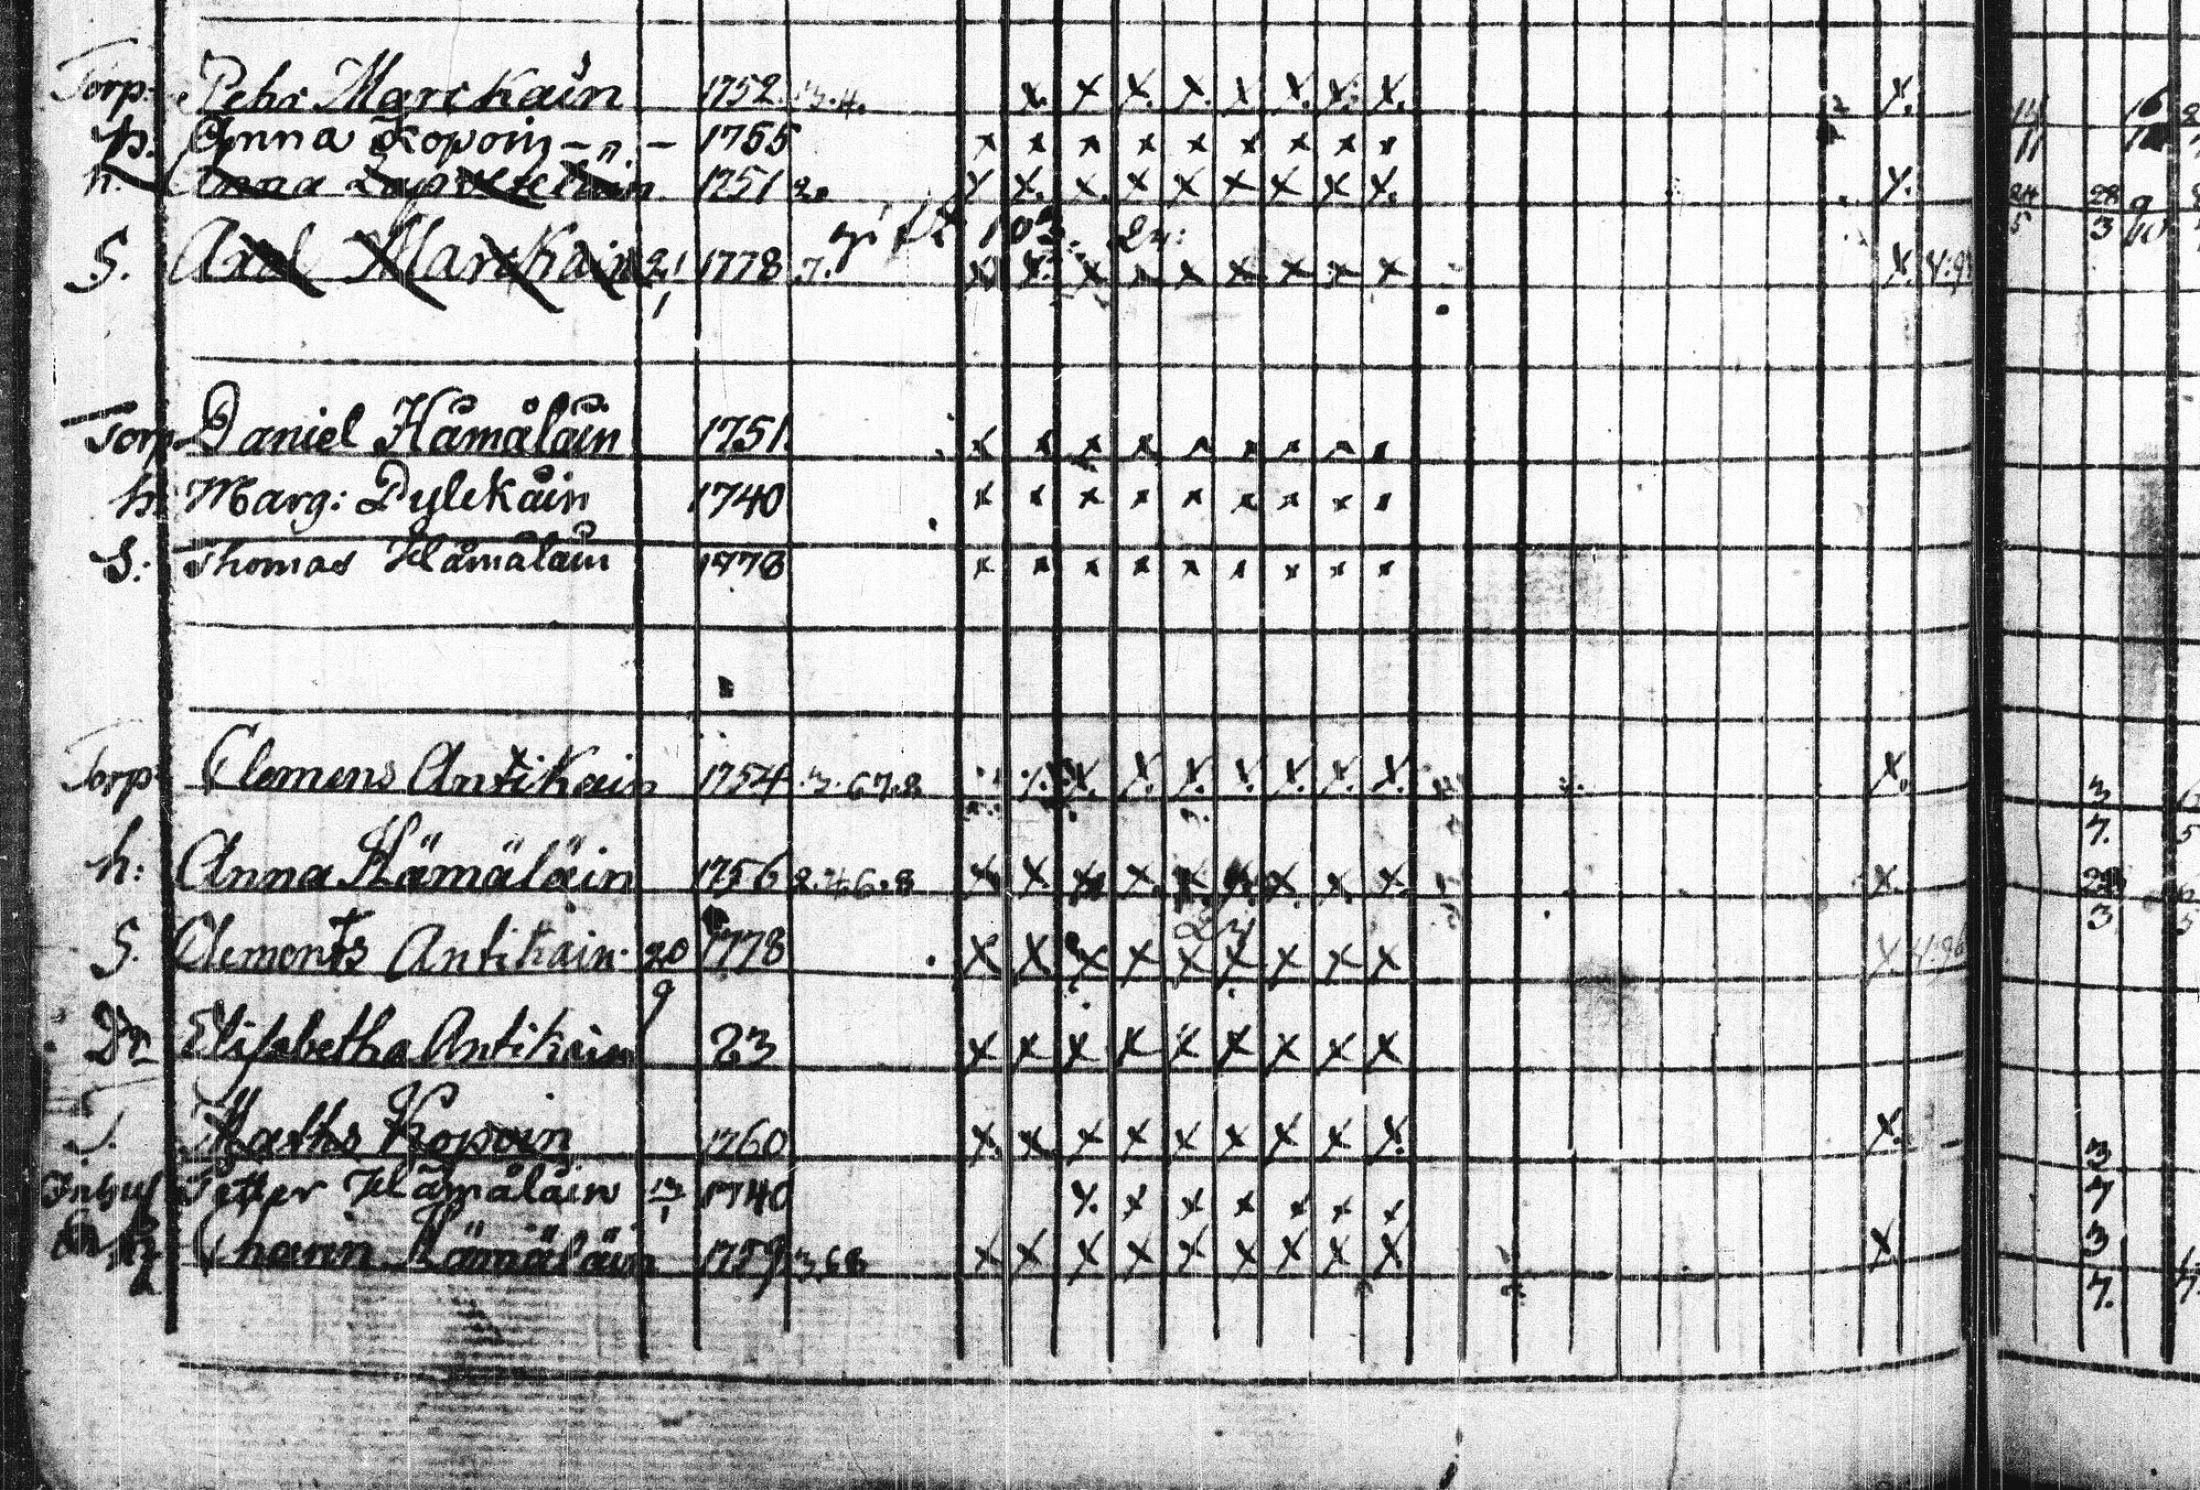 Torp: Pehr Marckain 1752. 3. 4. x. x x. x. x x. x. x. x.
h. Anna Kopoin - n. - 1765 x x x x x x x x x
h. Anna 1751 2. x x. x. x x x x x x. x.
gift 103. 24:
S. Axel Marckain 21/1 1778 7. x x. x x x x x x x x. 4:9
Torp Daniel Hämäläin 1751. x x x x x x x x x
h. Marg: Pylckäin 1740 x x x x x x x x x
S: Thomas Hämäläin 1778 x x x x x x x x x
Torp Clemens Antikain 1754 3. 6. 7. 8 x. x. x. x. x. x. x. x. x.
h: Anna Hämäläin 1756 2. 4. 6. 8 x. x. x. x. x. x. x. x. x. x.
S. Clements Antikain 20/9 1778 x x x x x x x x x x 4:96
Dr Elisabetha Antikain 23 x x x x x x x x x
Kopoin 1760 x. x. x x x x x x x. x.
Inhys Petter Hämäläin 1740 x. x x x x x x
Hämäläin 1759 3. 6 8 x x x x x x x x x x